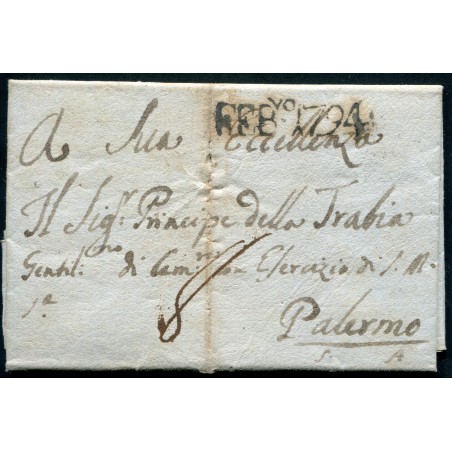 FEBᵛᵒ 1794
A Sua Eccellenza
Il Sigʳ Principe della Trabia
Gentil:ᵐᵒ di Camʳᵃ con Esercizio di S. M.
8
Palermo